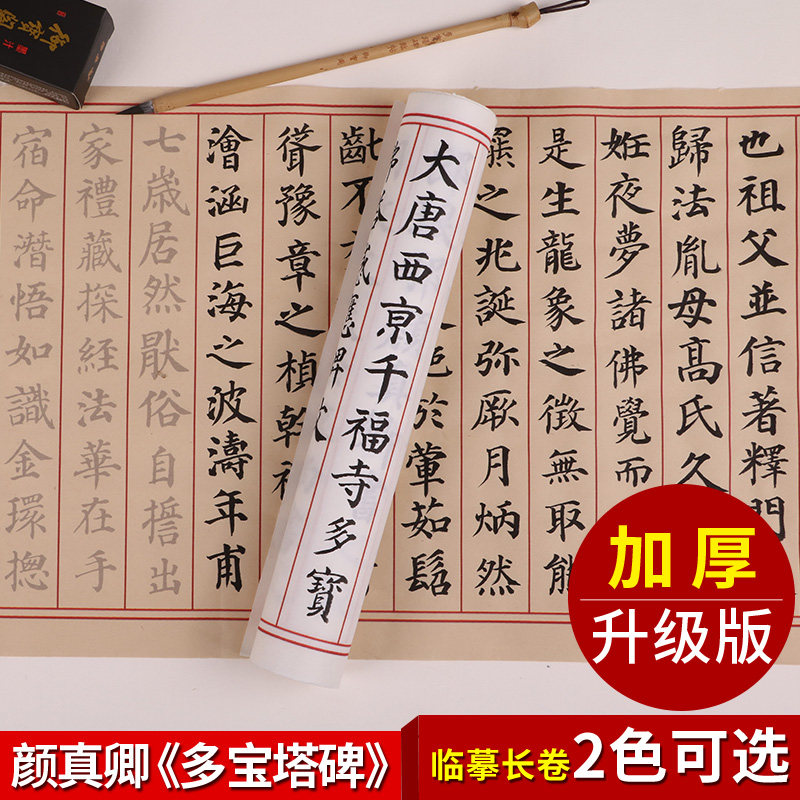 也祖父並信著釋門
歸法胤母髙氏久
姙夜夢諸佛覺而
是生龍象之徵無取
羆之兆誕弥厥月炳然
於葷茹髫
大唐西亰千福寺多寶
齓不
聳豫章之楨幹
澮涵巨海之波濤年甫
七歲居然猒俗自誓出
家禮藏探經法華在手
宿命潛悟如識金環揔
墨汁
加厚
升级版
颜真卿《多宝塔碑》
临摹长卷2色可选